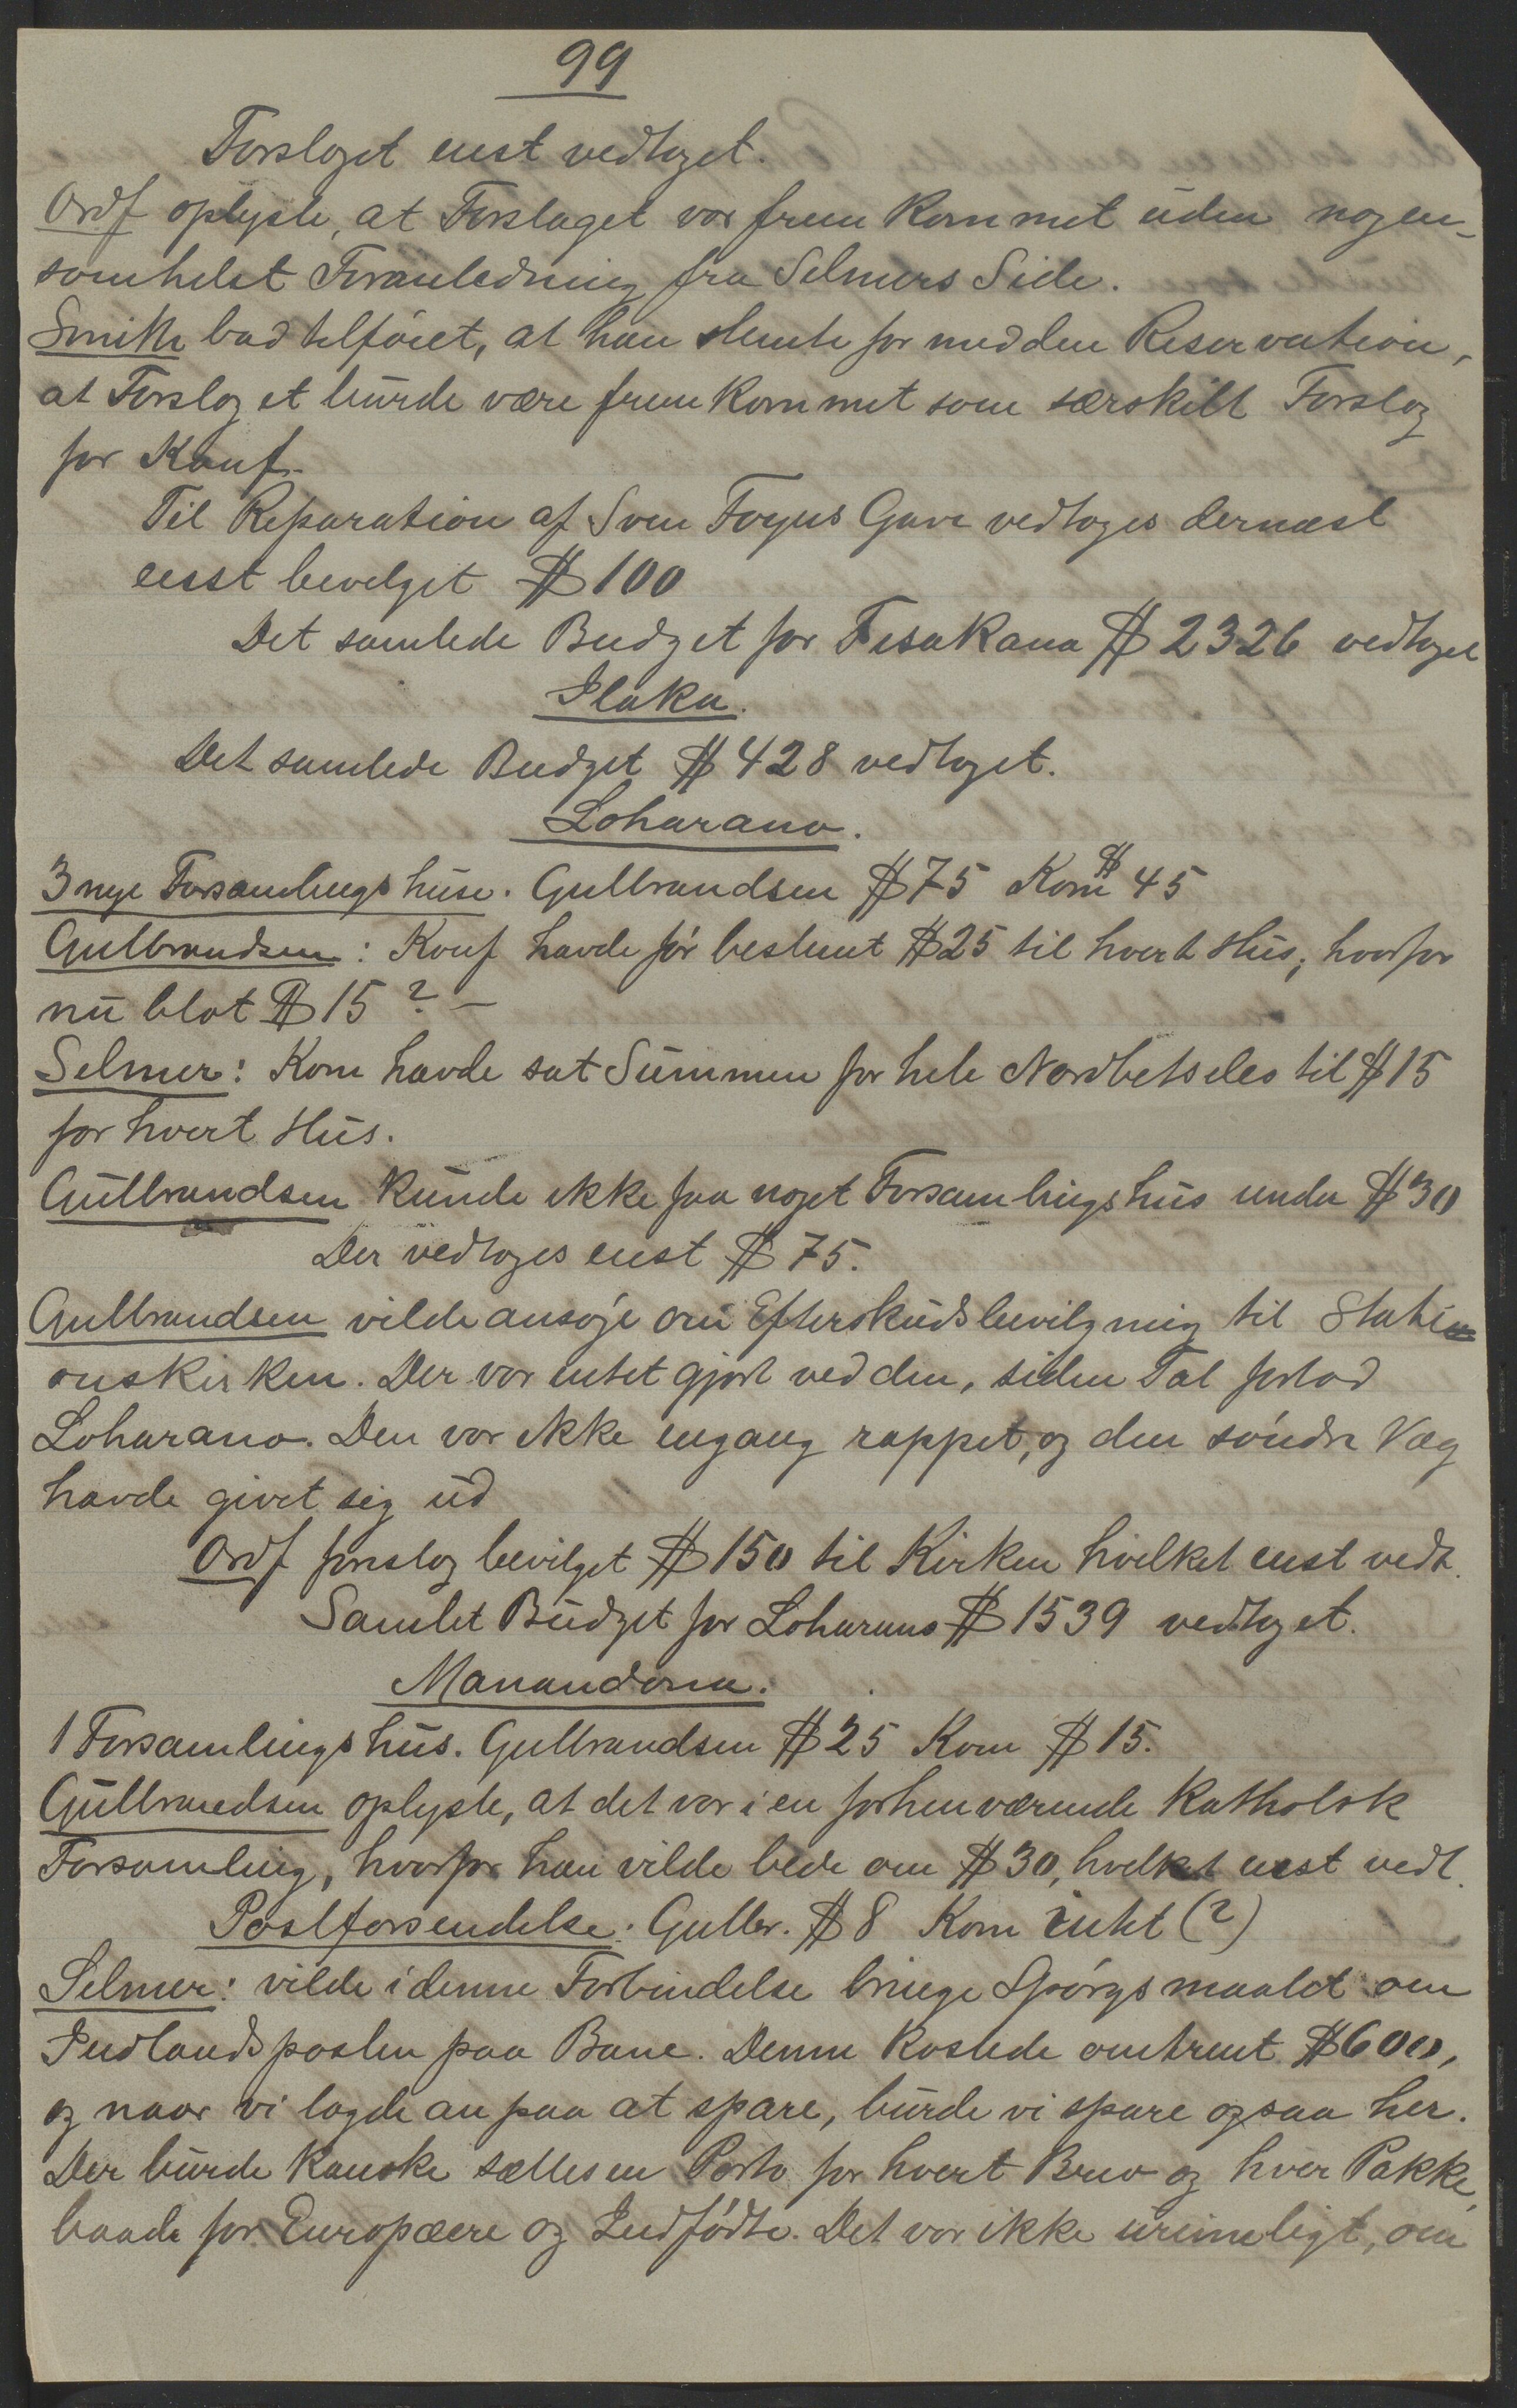 99
Forslaget enst vedtaget.
Ordf oplyste, at Forslaget var frem kommet uden nogen-
somhelst Foranledning fra Selmers Side.
Smith bad tilføiet, at han stemte for med den Reservation,
at Forslaget burde være fremkommet som særskilt Forslag
for Konf.
Til Reparation af Sven Foyns Gave vedtoges dernæst
enst bevilget $ 100
Det samlede Budget for Fisakana $ 2326 vedtaget
Ilaka.
Det samlede Budget $ 428 vedtaget.
Loharano.
3 nye Forsamlingshuse. Gulbrandsen $ 75 Kom $ 45
Gulbrandsen: Konf havde før bestemt $ 25 til hvert Hus; hvorfor
nu blot $ 15 ? —
Selmer: Kom havde sat Summen for hele Nordbetsileo til $ 15
for hvert Hus.
Gulbrandsen kunde ikke faa noget Forsamlingshus under $ 30
Der vedtoges enst $ 75.
Gulbrandsen vilde ansøge om Efterskudsbevilgning til Stati
onskirken. Der var intet gjort ved den, siden Tal forlod
Loharano. Den var ikke engang rappet, og den søndre Væg
havde givet sig ud
Ordf foreslog bevilget $ 150 til Kirken hvilket enst vedt.
Samlet Budget for Loharano $ 1539 vedtaget.
Manandona.
1 Forsamlingshus. Gulbrandsen $ 25 Kom $ 15.
Gulbrandsen oplyste, at det var i en forhenværende Katholsk
Forsamling, hvorfor han vilde bede om $ 30, hvilket enst vedt.
Postforsendelse: Gulbr. $ 8 Kom intet (?)
Selmer: vilde i denne Forbindelse bringe Spørgsmaalet om
Indlandsposten paa Bane. Denne kostede omtrent $ 600,
og naar vi lagde an paa at spare, burde vi spare ogsaa her.
Der burde kanske sættes en Porto for hvert Brev og hver Pakke,
baade for Europæere og Indfødte. Det var ikke urimeligt, om